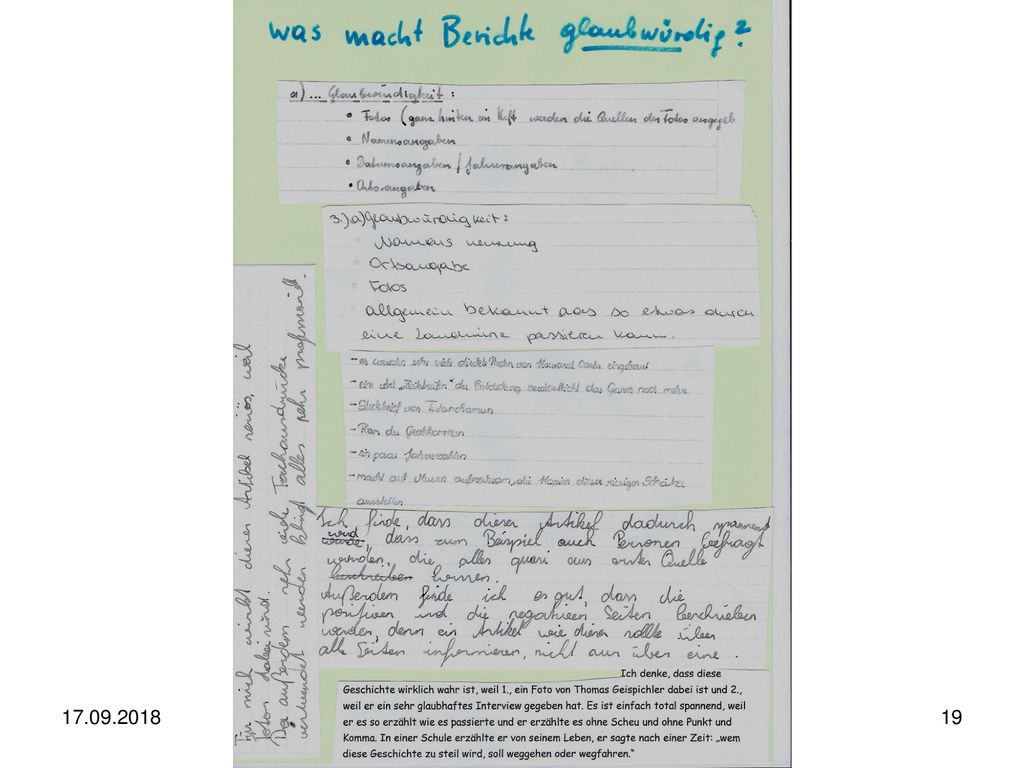 was macht Berichte glaubwürdig?
a) ... Glaubwürdigkeit:
• Fotos (ganz hinten im Heft werden die Quellen der Fotos angegeb
• Namensangaben
• Datumsangaben / Jahresangaben
• Ortsangaben
3.) a) Glaubwürdigkeit:
Namens nennung
Ortsangabe
Fotos
allgemein bekannt das so etwas durch
eine Landmine passieren kann.
- es werden sehr viele direkte Reden von Howard Carter eingebaut
- eine Art „Zeitstreifen“ der Entdeckung verdeutlicht das Ganze noch mehr
- Steckbrief von Tutanchamun
- Plan der Grabkammern
- ein paar Jahreszahlen
- macht auf Museen aufmerksam, die Kopien dieser riesigen Schätze
ausstellen
Für mich wirkt dieser Artikel seriös, weil
Fotos dabei sind.
Da außerdem sehr viele Fachausdrücke
verwendet werden klingt alles sehr
Ich finde, dass dieser Artikel dadurch spannend
wird
wurde, dass zum Beispiel auch Personen befragt
wurden, die alles quasi aus erster Quelle
beschreiben können.
Außerdem finde ich es gut, dass die
positiven und die negativen Seiten beschrieben
werden, denn ein Artikel wie dieser sollte über
alle Seiten informieren, nicht nur über eine.
Ich denke, dass diese
Geschichte wirklich wahr ist, weil 1., ein Foto von Thomas Geispichler dabei ist und 2.,
weil er ein sehr glaubhaftes Interview gegeben hat. Es ist einfach total spannend, weil
er es so erzählt wie es passierte und er erzählte es ohne Scheu und ohne Punkt und
Komma. In einer Schule erzählte er von seinem Leben, er sagte nach einer Zeit: „wem
diese Geschichte zu steil wird, soll weggehen oder wegfahren.“
17.09.2018
19